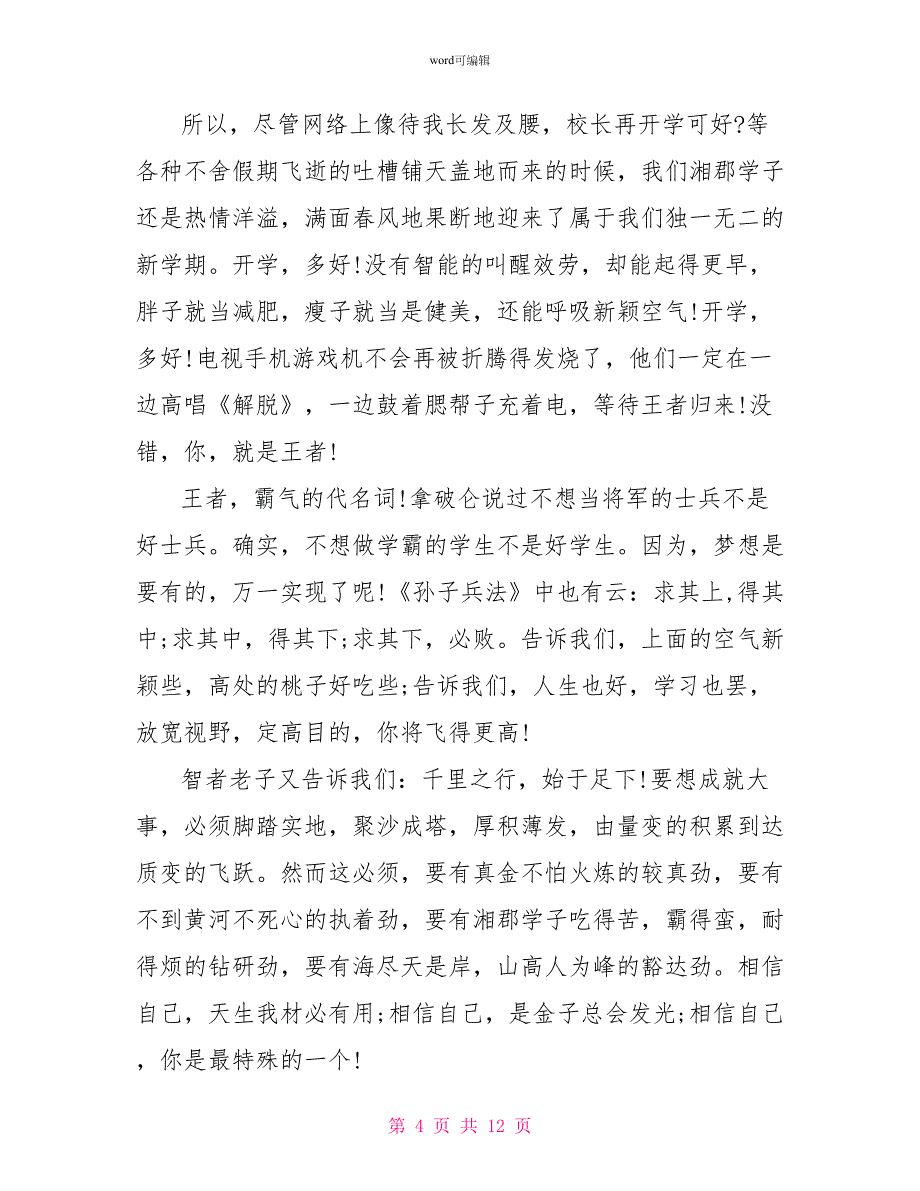 word可编辑
所以，尽管网络上像待我长发及腰，校长再开学可好?等
各种不舍假期飞逝的吐槽铺天盖地而来的时候，我们湘郡学子
还是热情洋溢，满面春风地果断地迎来了属于我们独一无二的
新学期。开学，多好!没有智能的叫醒效劳，却能起得更早，
胖子就当减肥，瘦子就当是健美，还能呼吸新颖空气!开学，
多好!电视手机游戏机不会再被折腾得发烧了，他们一定在一
边高唱《解脱》，一边鼓着腮帮子充着电，等待王者归来!没
错，你，就是王者!
王者，霸气的代名词!拿破仑说过不想当将军的士兵不是
好士兵。确实，不想做学霸的学生不是好学生。因为，梦想是
要有的，万一实现了呢!《孙子兵法》中也有云：求其上,得其
中;求其中，得其下;求其下，必败。告诉我们，上面的空气新
颖些，高处的桃子好吃些;告诉我们，人生也好，学习也罢，
放宽视野，定高目的，你将飞得更高!
智者老子又告诉我们：千里之行，始于足下!要想成就大
事，必须脚踏实地，聚沙成塔，厚积薄发，由量变的积累到达
质变的飞跃。然而这必须，要有真金不怕火炼的较真劲，要有
不到黄河不死心的执着劲，要有湘郡学子吃得苦，霸得蛮，耐
得烦的钻研劲，要有海尽天是岸，山高人为峰的豁达劲。相信
自己，天生我材必有用;相信自己，是金子总会发光;相信自己
，你是最特殊的一个!
第 4 页 共 12 页